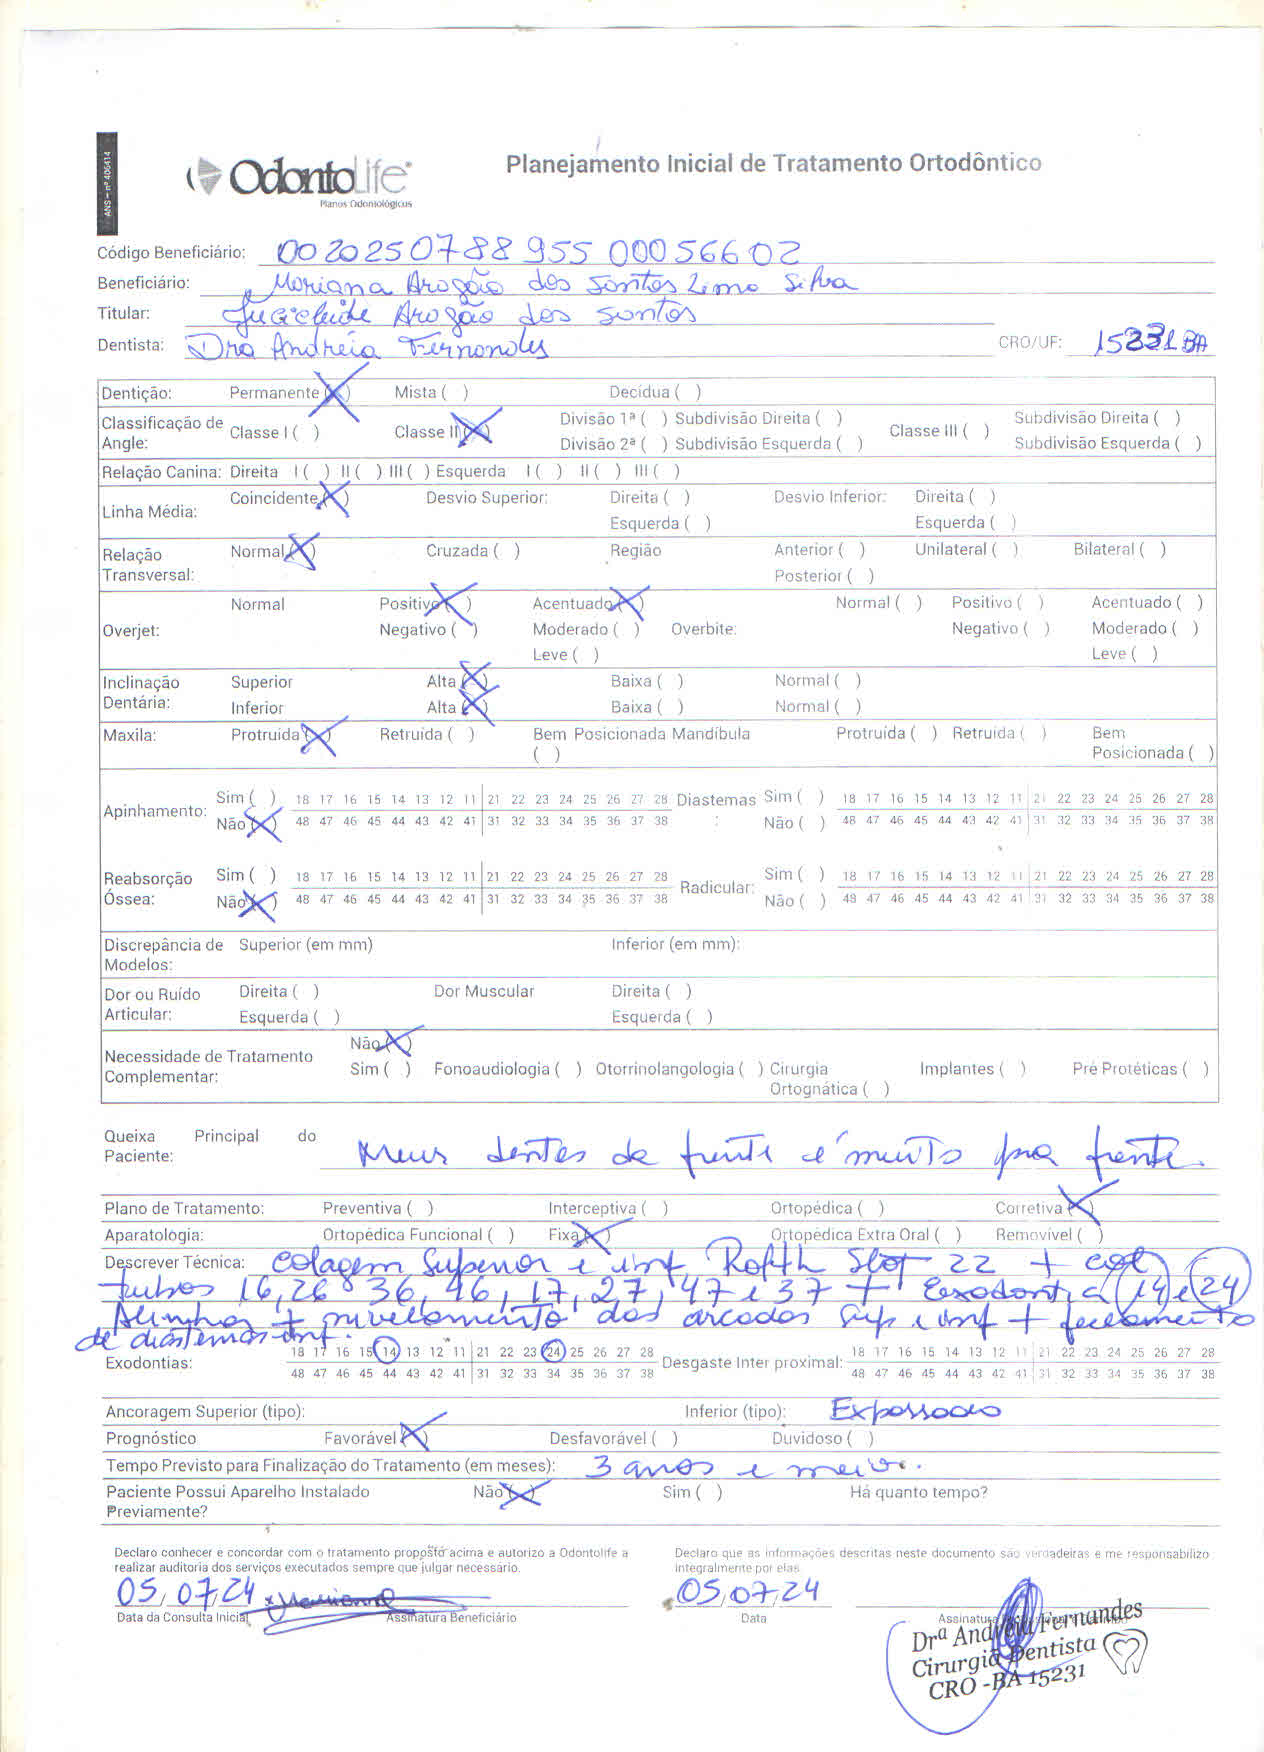 ANS - nº 406414
OdontoLife
Planos Odontológicos
Planejamento Inicial de Tratamento Ortodôntico
Código Beneficiário: 0020250788955 00056602
Beneficiário: Mariana Aragão dos Santos Lima Silva
Titular: Jucicleide Aragão dos Santos
Dentista: Dra Andréia Fernandes CRO/UF: 15231 BA
Dentição: Permanente (X) Mista ( ) Decídua ( )
Classificação de Angle: Classe I ( ) Classe II (X) Divisão 1ª ( ) Subdivisão Direita ( ) Classe III ( ) Subdivisão Direita ( )
Divisão 2ª ( ) Subdivisão Esquerda ( ) Subdivisão Esquerda ( )
Relação Canina: Direita I ( ) II ( ) III ( ) Esquerda I ( ) II ( ) III ( )
Linha Média: Coincidente (X) Desvio Superior: Direita ( ) Desvio Inferior: Direita ( )
Esquerda ( ) Esquerda ( )
Relação Transversal: Normal (X) Cruzada ( ) Região Anterior ( ) Unilateral ( ) Bilateral ( )
Posterior ( )
Overjet: Normal Positivo (X) Acentuado (X) Overbite: Normal ( ) Positivo ( ) Acentuado ( )
Negativo ( ) Moderado ( ) Negativo ( ) Moderado ( )
Leve ( ) Leve ( )
Inclinação Dentária: Superior Alta (X) Baixa ( ) Normal ( )
Inferior Alta (X) Baixa ( ) Normal ( )
Maxila: Protruída (X) Retruída ( ) Bem Posicionada ( ) Mandíbula Protruída ( ) Retruída ( ) Bem Posicionada ( )
Apinhamento: Sim ( ) 18 17 16 15 14 13 12 11 21 22 23 24 25 26 27 28 Diastemas: Sim ( ) 18 17 16 15 14 13 12 11 21 22 23 24 25 26 27 28
Não (X) 48 47 46 45 44 43 42 41 31 32 33 34 35 36 37 38 Não ( ) 48 47 46 45 44 43 42 41 31 32 33 34 35 36 37 38
Reabsorção Óssea: Sim ( ) 18 17 16 15 14 13 12 11 21 22 23 24 25 26 27 28 Radicular: Sim ( ) 18 17 16 15 14 13 12 11 21 22 23 24 25 26 27 28
Não (X) 48 47 46 45 44 43 42 41 31 32 33 34 35 36 37 38 Não ( ) 48 47 46 45 44 43 42 41 31 32 33 34 35 36 37 38
Discrepância de Modelos: Superior (em mm) Inferior (em mm):
Dor ou Ruído Articular: Direita ( ) Dor Muscular Direita ( )
Esquerda ( ) Esquerda ( )
Necessidade de Tratamento Complementar: Não (X)
Sim ( ) Fonoaudiologia ( ) Otorrinolangologia ( ) Cirurgia Ortognática ( ) Implantes ( ) Pré Protéticas ( )
Queixa Principal do Paciente: Meus dentes da frente é muito pra frente.
Plano de Tratamento: Preventiva ( ) Interceptiva ( ) Ortopédica ( ) Corretiva (X)
Aparatologia: Ortopédica Funcional ( ) Fixa (X) Ortopédica Extra Oral ( ) Removível ( )
Descrever Técnica: Colagem Superior e inf. Roth Slot 22 + col
tubos 16, 26 36, 46, 17, 27, 47 e 37 + Exodontia 14 e 24
Alinhar + nivelamento das arcadas Sup e inf + fechamento
de diastemas inf.
Exodontias: 18 17 16 15 14 13 12 11 21 22 23 24 25 26 27 28 Desgaste Inter proximal: 18 17 16 15 14 13 12 11 21 22 23 24 25 26 27 28
48 47 46 45 44 43 42 41 31 32 33 34 35 36 37 38 48 47 46 45 44 43 42 41 31 32 33 34 35 36 37 38
Ancoragem Superior (tipo): Inferior (tipo):
Prognóstico Favorável (X) Desfavorável ( ) Duvidoso ( )
Tempo Previsto para Finalização do Tratamento (em meses): 3 anos e meio.
Paciente Possui Aparelho Instalado Previamente? Não (X) Sim ( ) Há quanto tempo?
Declaro conhecer e concordar com o tratamento proposto acima e autorizo a Odontolife a
realizar auditoria dos serviços executados sempre que julgar necessário.
Declaro que as informações descritas neste documento são verdadeiras e me responsabilizo
integralmente por elas.
05/07/24 05/07/24
Data da Consulta Inicial Assinatura Beneficiário Data Assinatura
Drª Andréia Fernandes
Cirurgiã Dentista
CRO-BA 15231